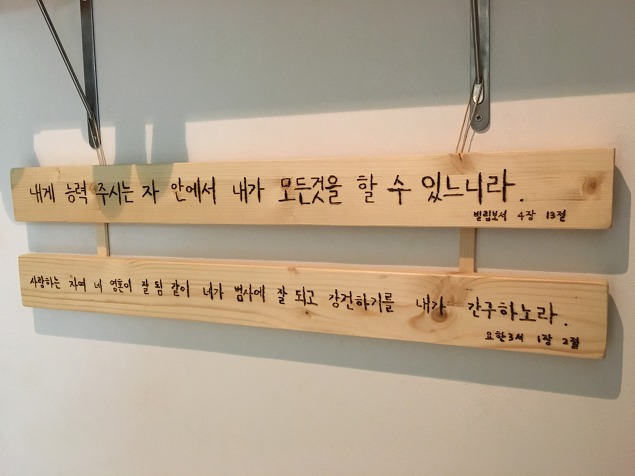 내게 능력 주시는 자 안에서 내가 모든것을 할 수 있느니라.
빌립보서 4장 13절
사랑하는 자여 네 영혼이 잘 됨 같이 네가 범사에 잘 되고 강건하기를 내가 간구하노라.
요한3서 1장 2절